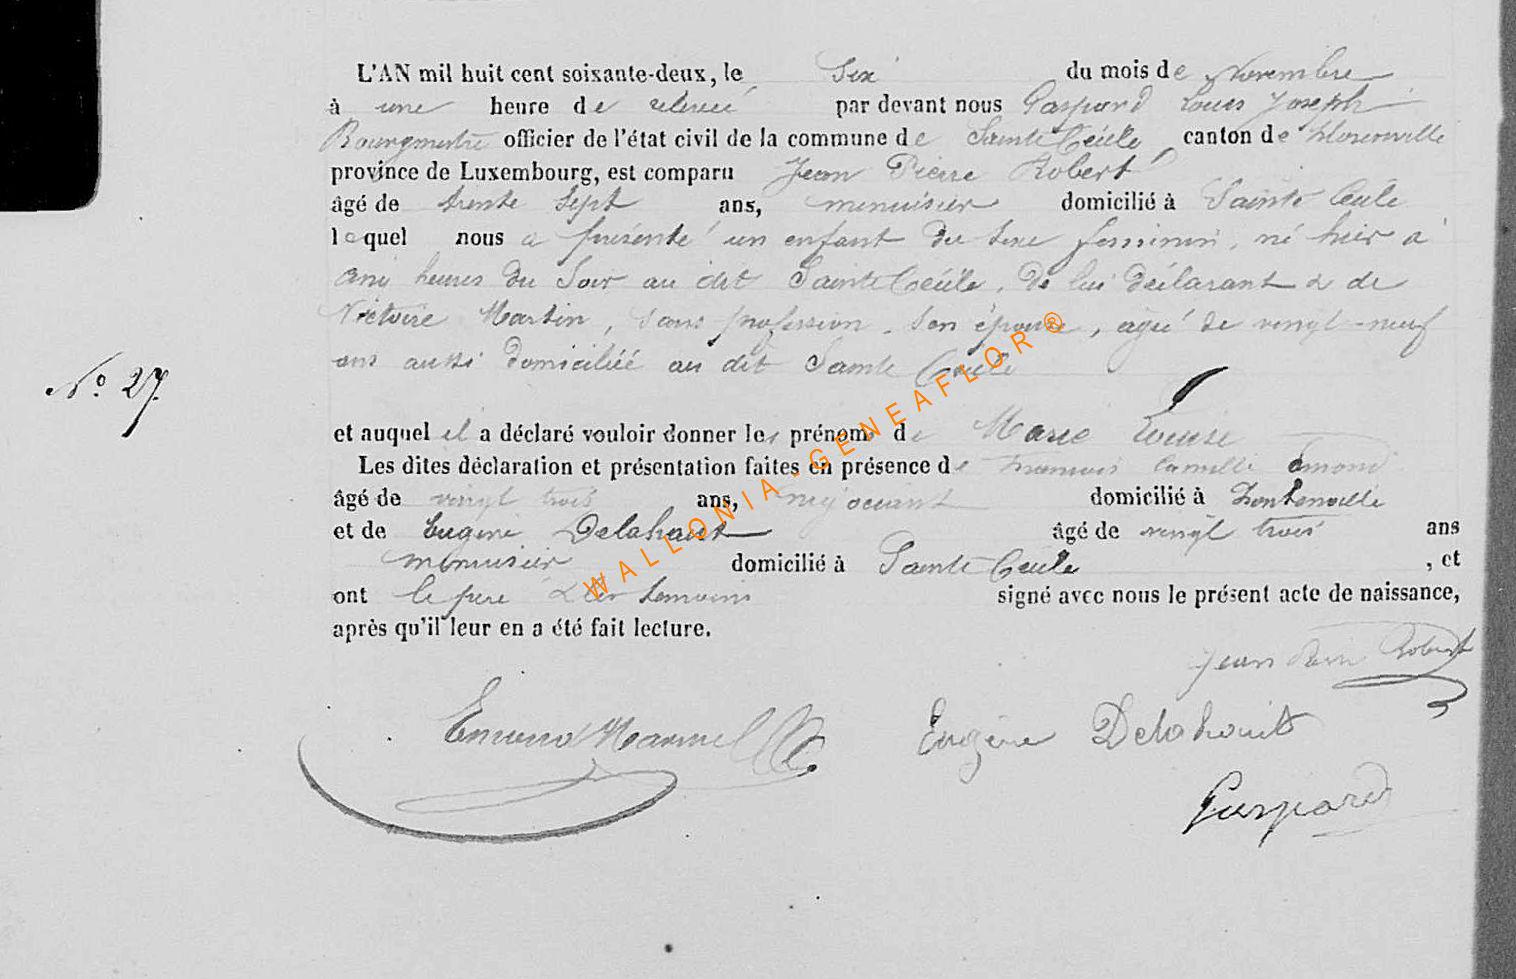 L'AN mil huit cent soixante-deux, le Six du mois de Novembre
à une heure de relevée par devant nous Gaspard Louis Joseph
Bourgmestre officier de l'état civil de la commune de Sainte Cécile, canton de Florenville
province de Luxembourg, est comparu Jean Pierre Robert
âgé de trente sept ans, menuisier domicilié à Sainte Cécile
lequel nous a présenté un enfant du sexe féminin, né hier à
heures du Soir au dit Sainte Cécile, de lui déclarant & de
Victoire Martin, sans profession, son épouse, agée de vingt-neuf
ans aussi domiciliée au dit Sainte Cécile
No. 27.
et auquel il a déclaré vouloir donner les prénoms de Marie Louise
Les dites déclaration et présentation faites en présence de Camille Emond
âgé de vingt trois ans, négociant domicilié à
et de Eugène Delahaut âgé de vingt trois ans
menuisier domicilié à Sainte Cécile, et
ont le père & les témoins signé avec nous le présent acte de naissance,
après qu'il leur en a été fait lecture.
Jean Pierre Robert
Eugène Delahaut
Gaspard
WALLONIA-GENEAFLOR®